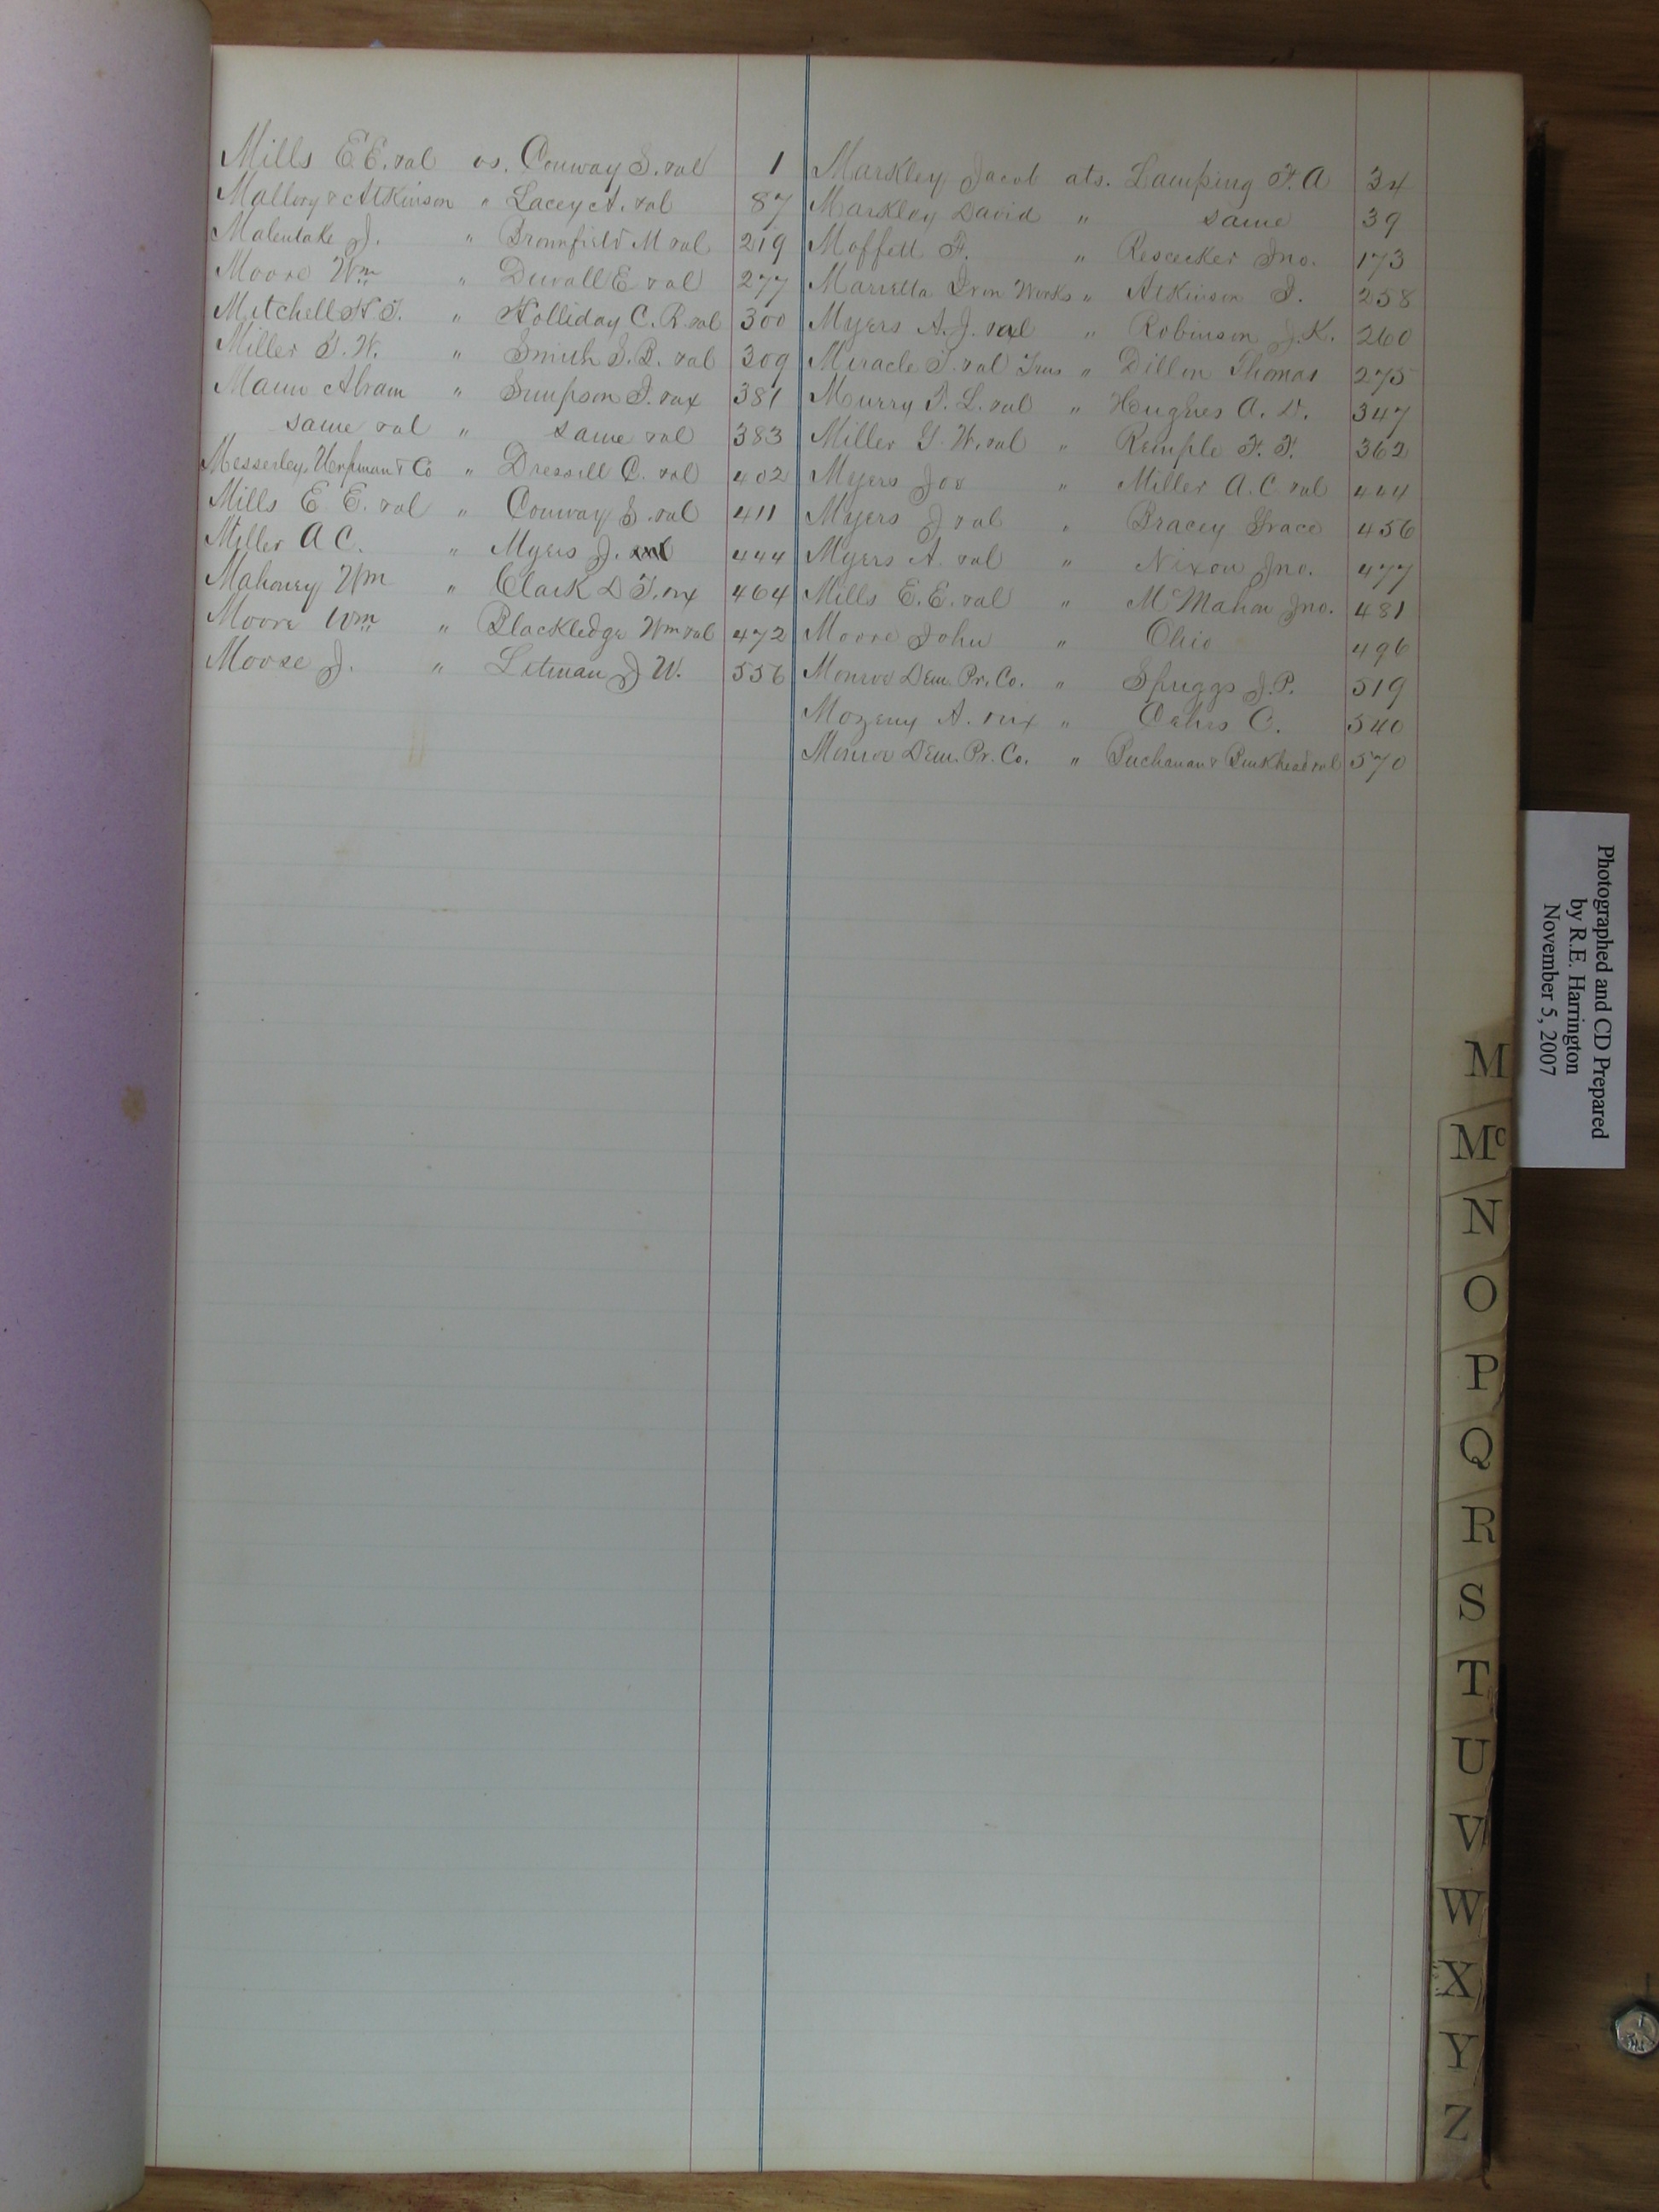 Mills E.E. et al vs. Conway S. et al 1
Mallory & Atkinson " Lacey A. et al 87
Malentake J. " Brownfield M et al 219
Moore Wm " Duvall E et al 277
Mitchell H.T. " Holliday C.R. et al 300
Miller G.W. " Smith S.B. et al 309
Mann Abram " Simpson J. et ux 381
same et al " same et al 383
Messerley, & Co " Dressell C. et al 402
Mills E E. et al " Conway S. et al 411
Miller A C. " Myers J. 444
Mahoney Wm " Clark D T. et ux 464
Moore Wm " Blackledge Wm et al 472
Moose J. " Litman J W. 556
Markley Jacob ats. Lamping F. A 34
Markley David " same 39
Moffett F. " Jno. 173
Marietta Iron Works " Atkinson I. 258
Myers A.J. et al " Robinson J.K. 260
Miracle T. et al Trus " Dillon Thomas 275
Murry T. L. et al " Hughes A. D. 347
Miller G. W. et al " Remple F. F. 362
Myers Jos " Miller A.C. et al 444
Myers J et al " Bracey Grace 456
Myers A. et al " Nixon Jno. 477
Mills E.E. et al " McMahon Jno. 481
Moore John " Ohio 496
Monroe Dem. Pr. Co. " Spriggs J.P. 519
Mozeny A. et ux " C. 540
Monroe Dem. Pr. Co. " Buchanan & et al 570
Photographed and CD Prepared
by R.E. Harrington
November 5, 2007
M
Mc
N
O
P
Q
R
S
T
U
V
W
X
Y
Z